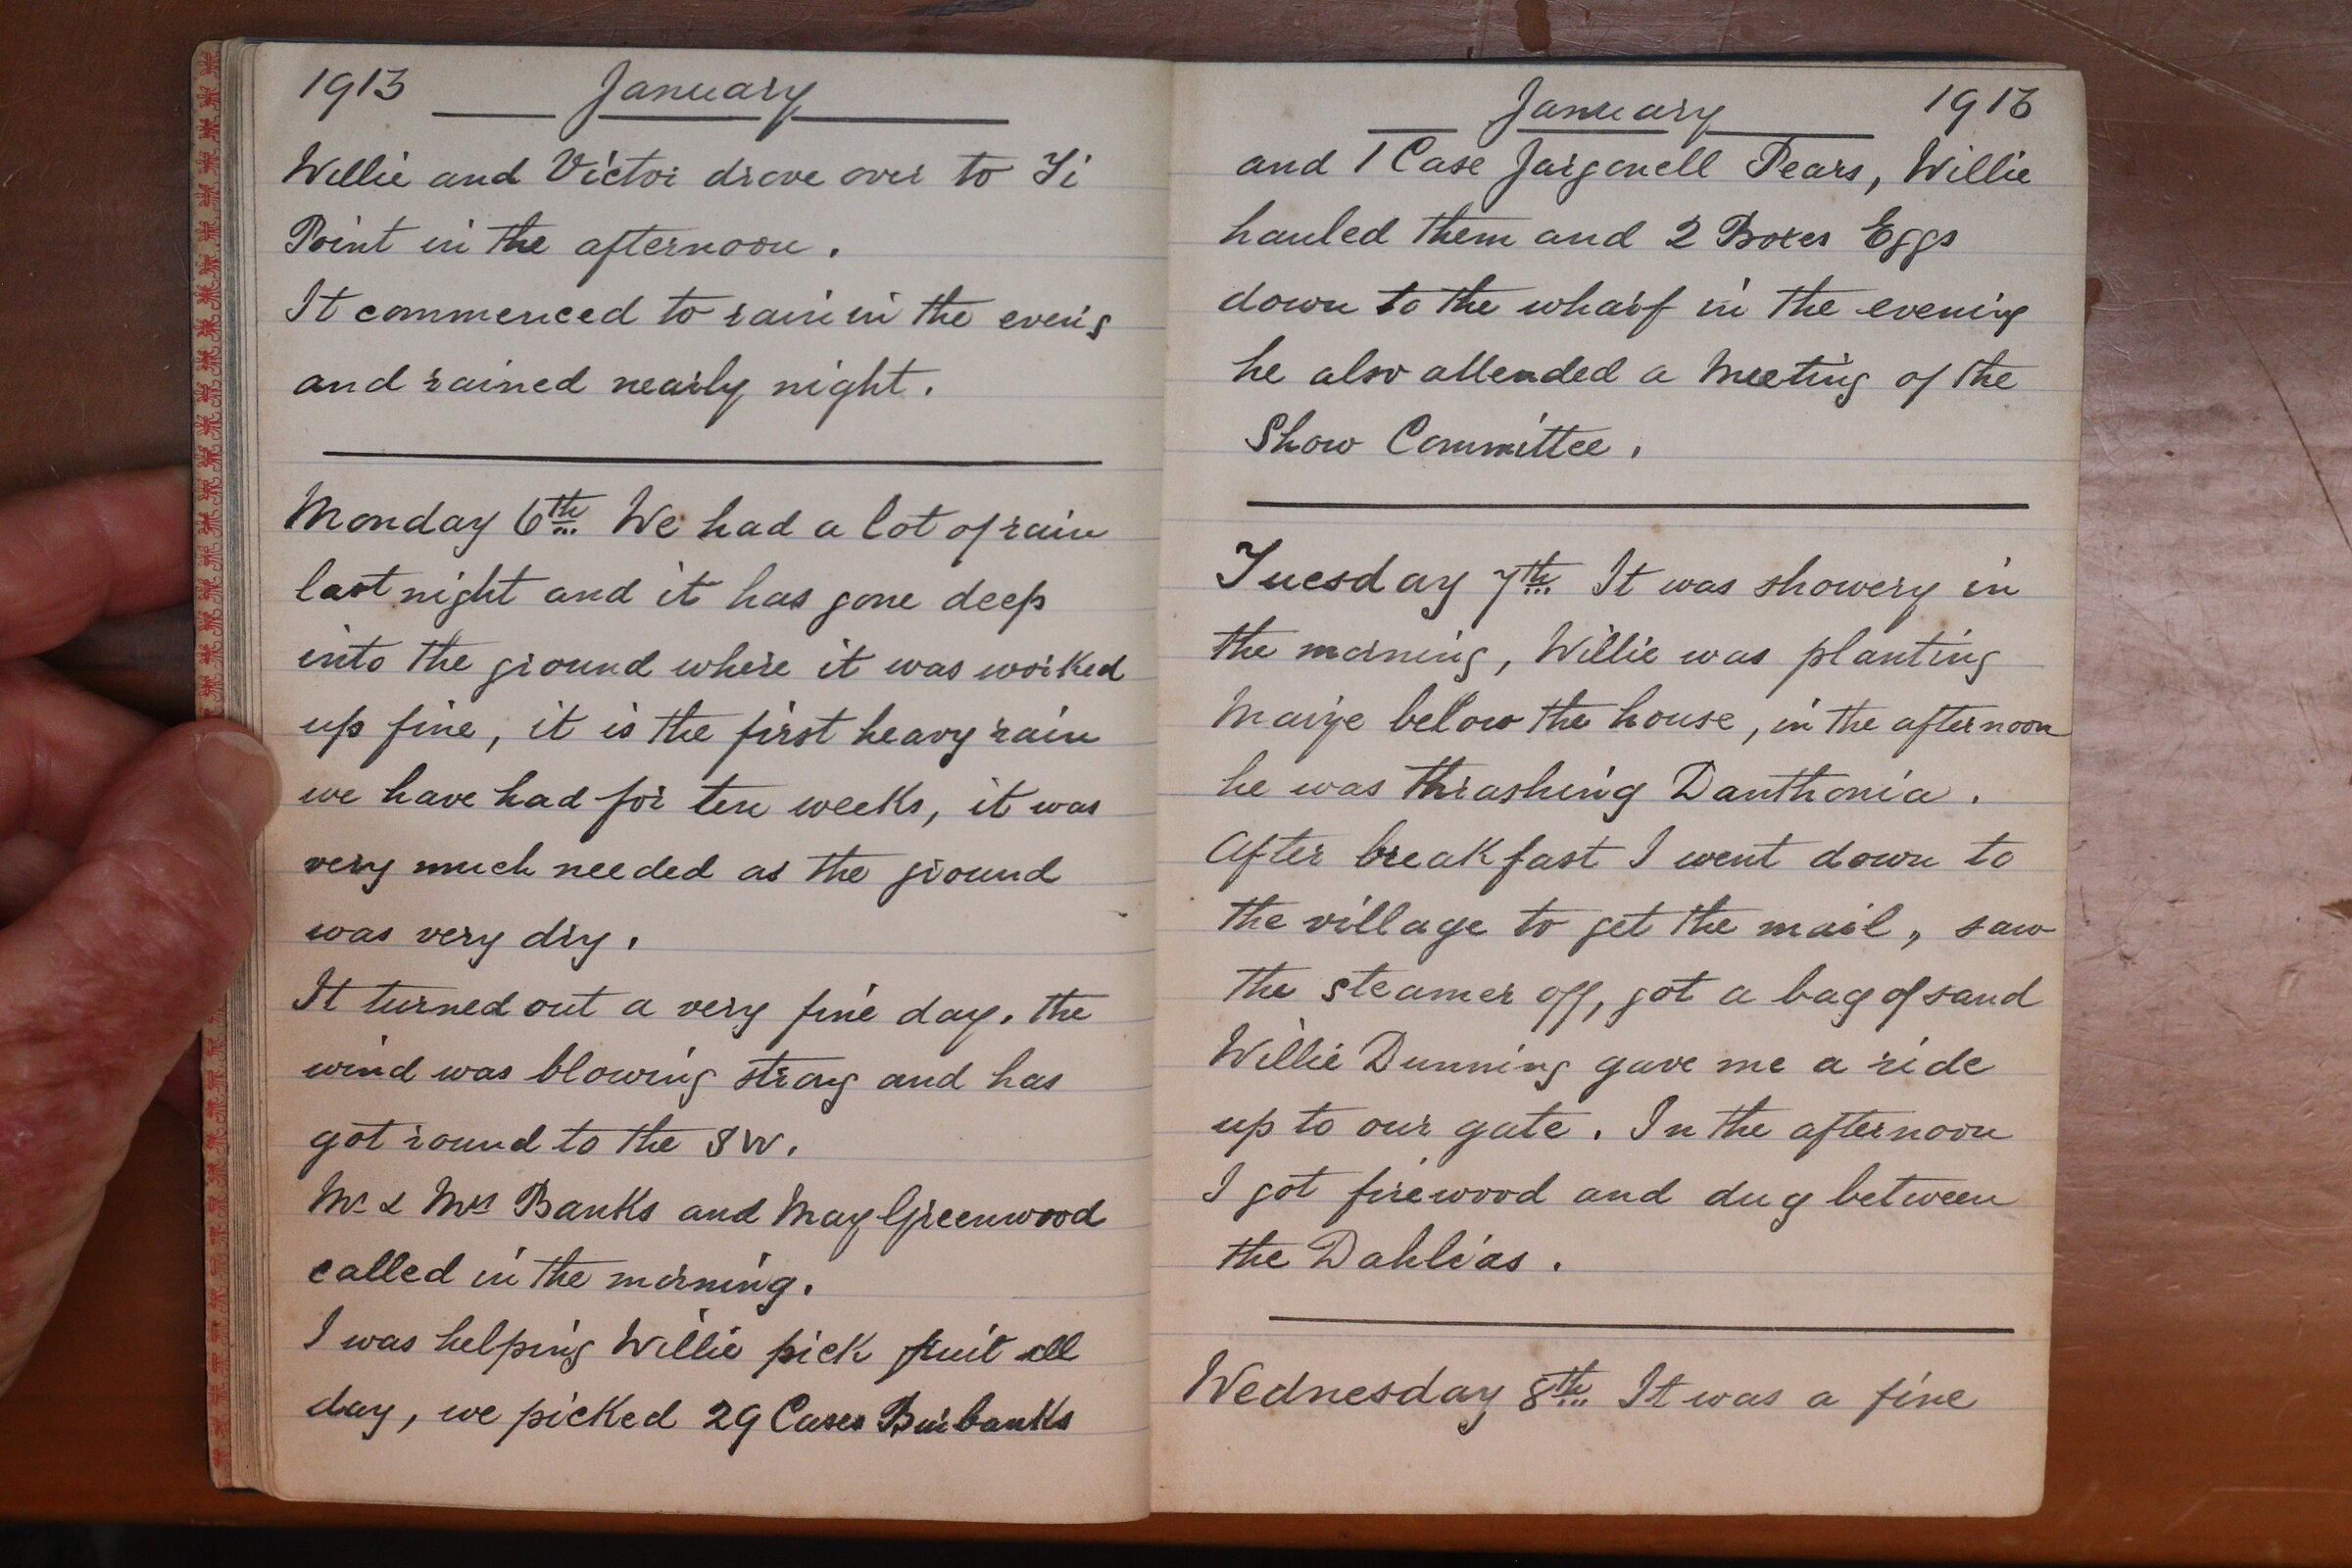 1913 January
Willie and Victor drove over to Ti
Point in the afternoon.
It commenced to rain in the evenig
and rained nearly night.
Monday 6th We had a lot of rain
last night and it has gone deep
into the ground where it was worked
up fine, it is the first heavy rain
we have had for ten weeks, it was
very much needed as the ground
was very dry.
It turned out a very fine day. the
wind was blowing strong and has
got round to the SW.
Mr & Mrs Banks and May Greenwood
called in the morning.
I was helping Willie pick fruit all
day, we picked 29 Cases Burbanks
January 1913
and 1 Case Jargonell Pears, Willie
hauled them and 2 Boxes Eggs
down to the wharf in the evening
he also attended a Meeting of the
Show Committee.
Tuesday 7th It was showery in
the morning, Willie was planting
Maize below the house, in the afternoon
he was thrashing Danthonia.
After breakfast I went down to
the village to get the mail, saw
the steamer off, got a bag of sand
Willie Dunning gave me a ride
up to our gate. In the afternoon
I got firewood and dug between
the Dahlias.
Wednesday 8th It was a fine